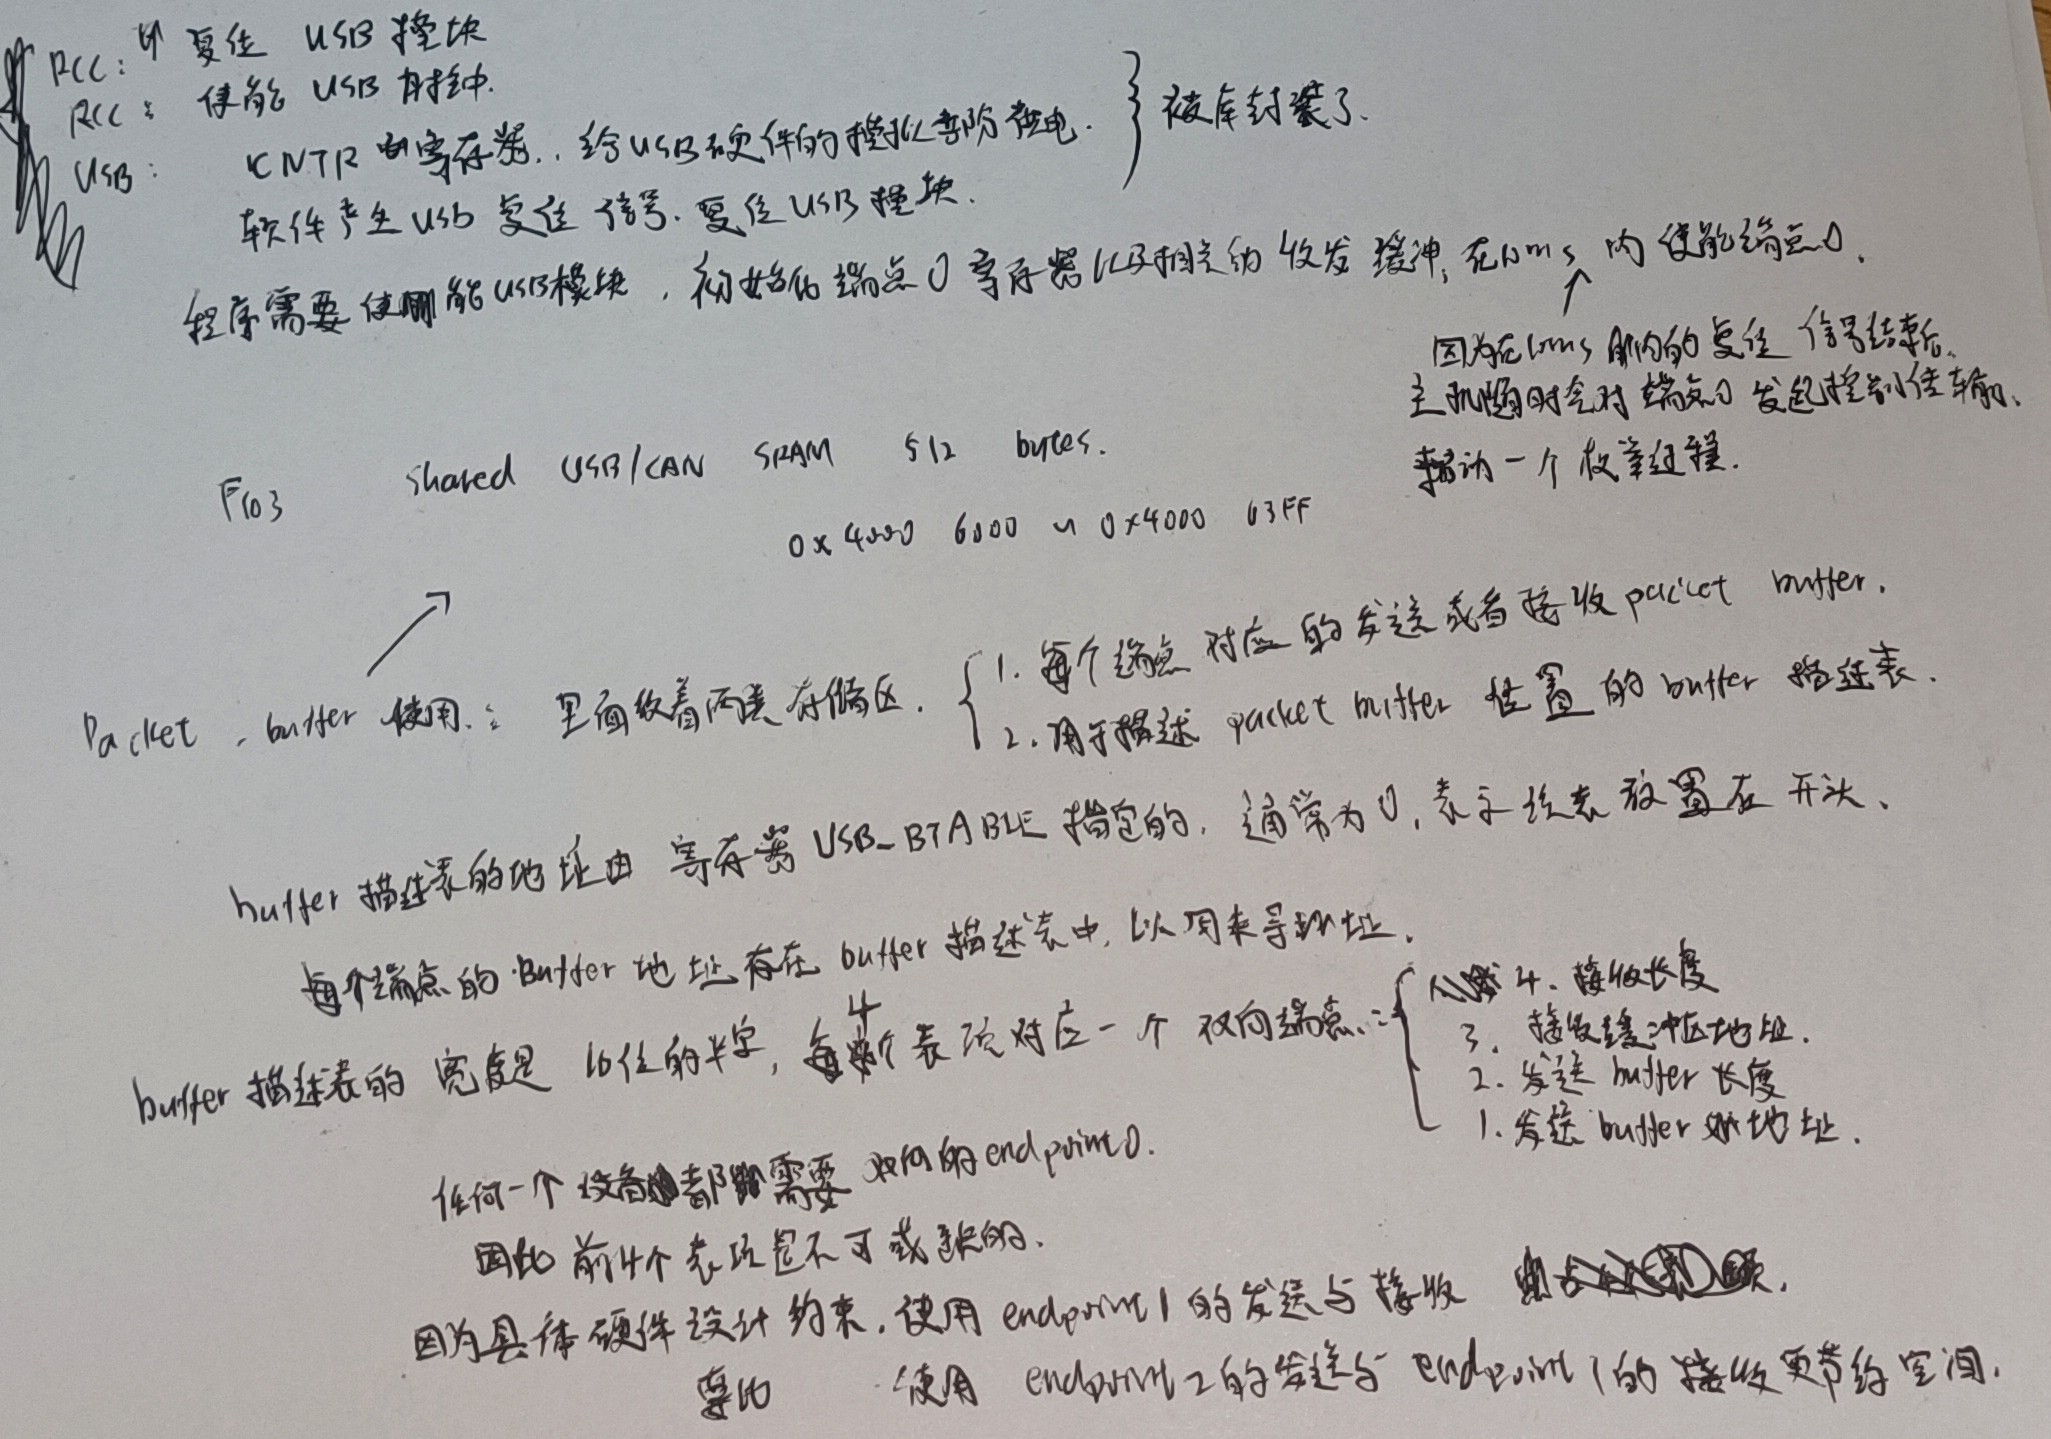 RCC: 复位 USB 模块
RCC: 使能 USB 时钟.
USB: CNTR 寄存器.. 给USB硬件的模拟部份供电.
} 被库封装了.
软件产生 usb 复位 信号. 复位 USB 模块.
程序需要使能USB模块, 初始化端点0寄存器以及相关的收发缓冲, 在10ms内使能端点0.
因为在10ms 的复位 信号结束后.
主机随时会对端点0发起控制传输.
一个枚举过程.
F103 shared USB/CAN SRAM 512 bytes.
0x4000 6000 ~ 0x4000 63FF
Packet buffer 使用: 里面放着两类存储区.
1. 每个端点对应的发送或者接收 packet buffer.
2. 用于描述 packet buffer 位置的 buffer 描述表.
buffer 描述表的地址由 寄存器 USB_BTABLE 指定的, 通常为0, 表示该表放置在开头.
每个端点的 Buffer 地址存在 buffer 描述表中, 以用来寻址.
buffer 描述表的 宽度是 16位的半字, 每4个表项对应一个 双向端点:
4. 接收长度
3. 接收缓冲区地址.
2. 发送 buffer 长度
1. 发送 buffer 地址.
任何一个设备都需要 双向的 endpoint0.
因此 前4个表项是不可或缺的.
因为具体硬件设计约束, 使用 endpoint1 的发送与接收
要比 使用 endpoint2的发送与 endpoint1的接收更节约空间.